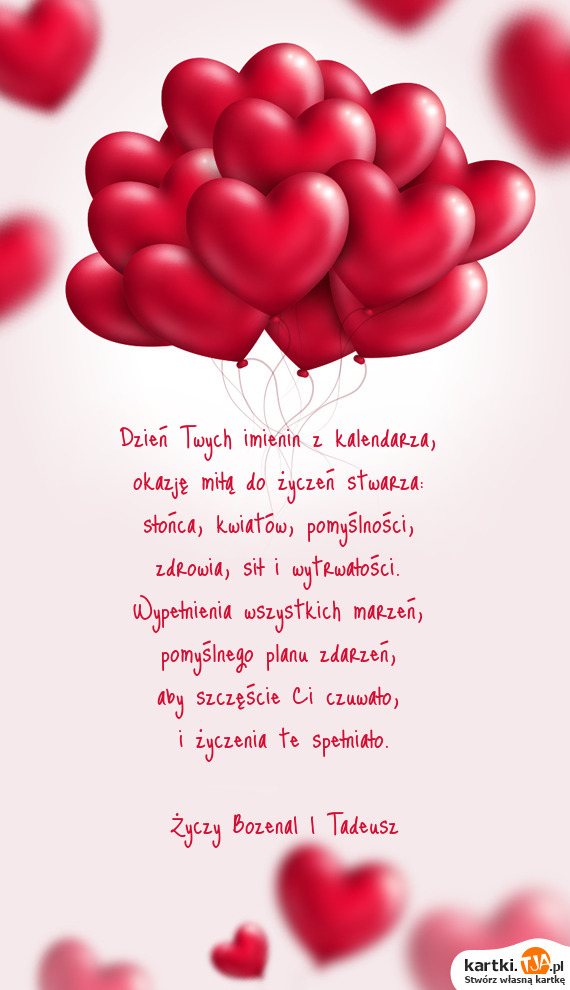 Dzień Twych imienin z kalendarza,
okazję miłą do życzeń stwarza:
słońca, kwiatów, pomyślności,
zdrowia, sił i wytrwałości.
Wypełnienia wszystkich marzeń,
pomyślnego planu zdarzeń,
aby szczęście Ci czuwało,
i życzenia te spełniało.
Życzy Bozenal I Tadeusz
kartki.TJA.pl
Stwórz własną kartkę